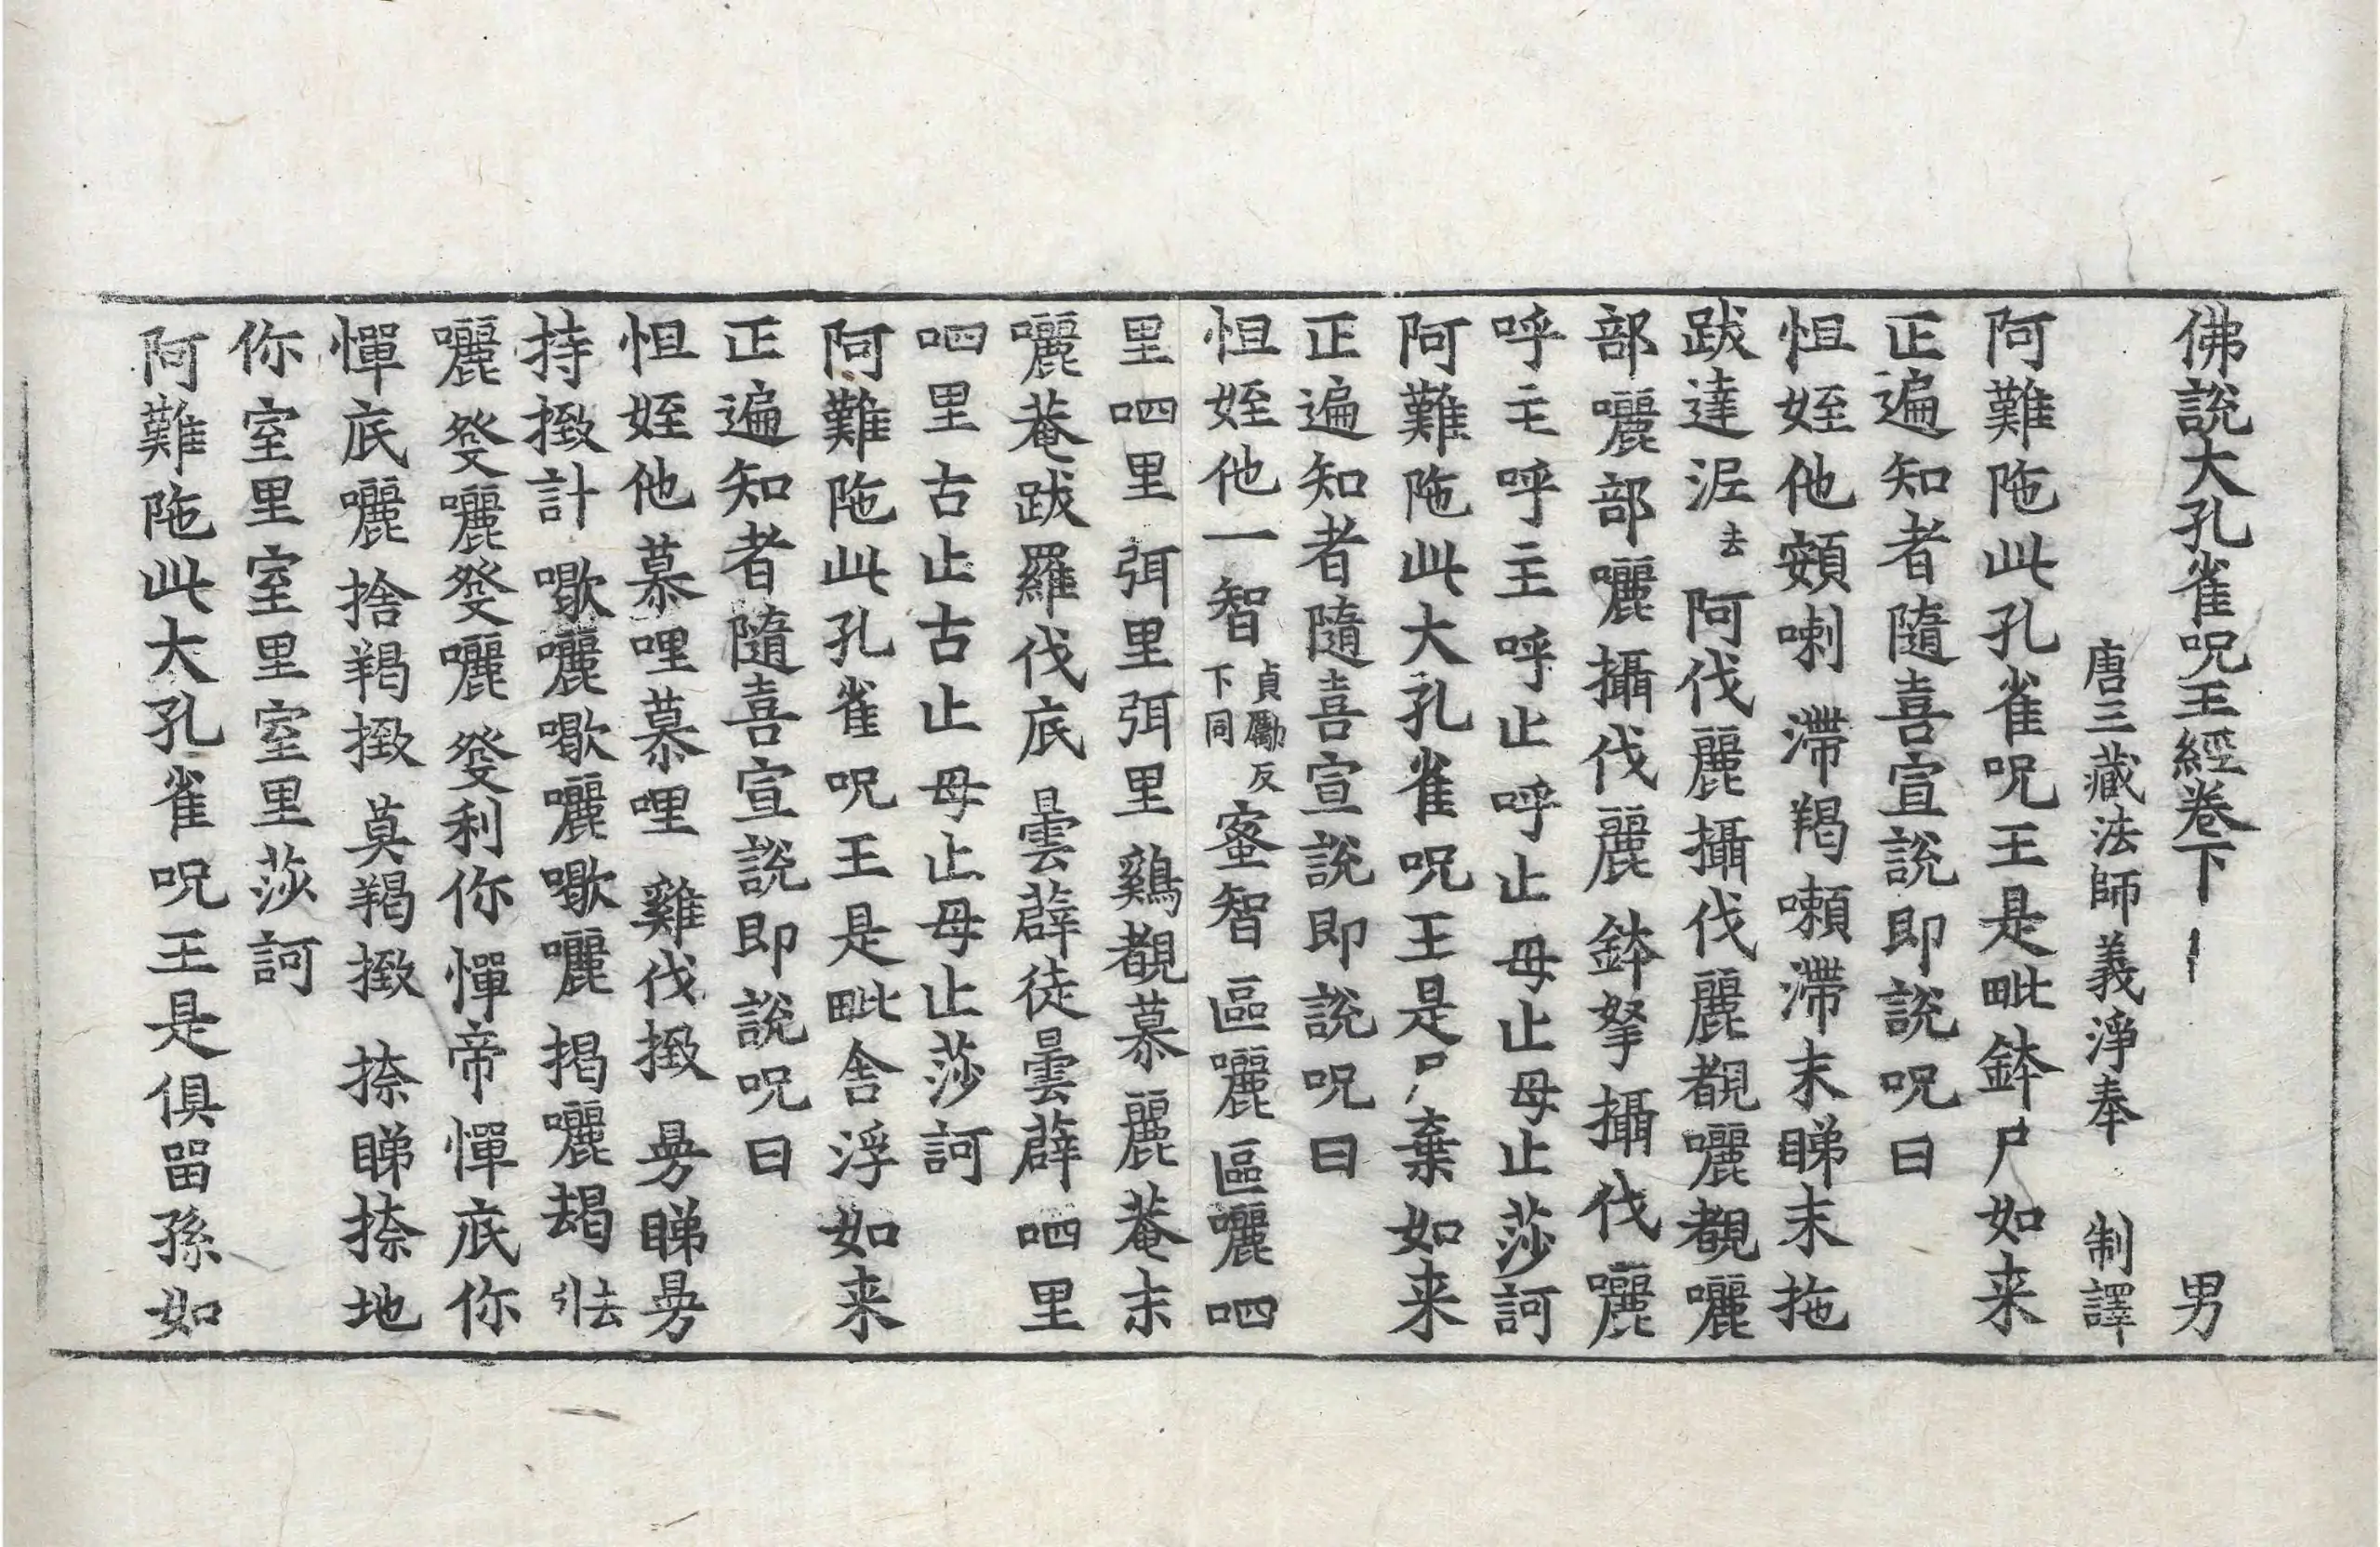 佛說大孔雀呪王經卷下 男
唐三藏法師義淨奉 制譯
阿難陁此孔雀呪王是毗鉢尸如来
正遍知者隨喜宣說即說呪曰
怛姪他頞喇 滯羯嚩滯末睇末拖
跋達泥去 阿伐麗攝伐麗覩囇覩囇
部囇部囇攝伐麗 鉢拏攝伐囇
呼主呼主呼止呼止 母止母止莎訶
阿難陁此大孔雀呪王是尸棄如来
正遍知者隨喜宣說即說呪曰
怛姪他一智貞勵反下同蜜智 區囇區囇呬
里呬里 弭里弭里 鷄覩慕麗菴末
囇菴跋羅伐底 曇薜徒曇薜 呬里
呬里古止古止 母止母止莎訶
阿難陁此孔雀呪王是毗舍浮如来
正遍知者隨喜宣說即說呪曰
怛姪他慕哩慕哩 雞伐撥 曼睇曼
持撥計 囇囇囇 揭囇朅去引
囇 發囇發囇 發利你憚帝憚底你
憚底囇 捨羯撥 莫羯撥 捺睇捺地
你室里室里室里莎訶
阿難陁此大孔雀呪王是俱留孫如